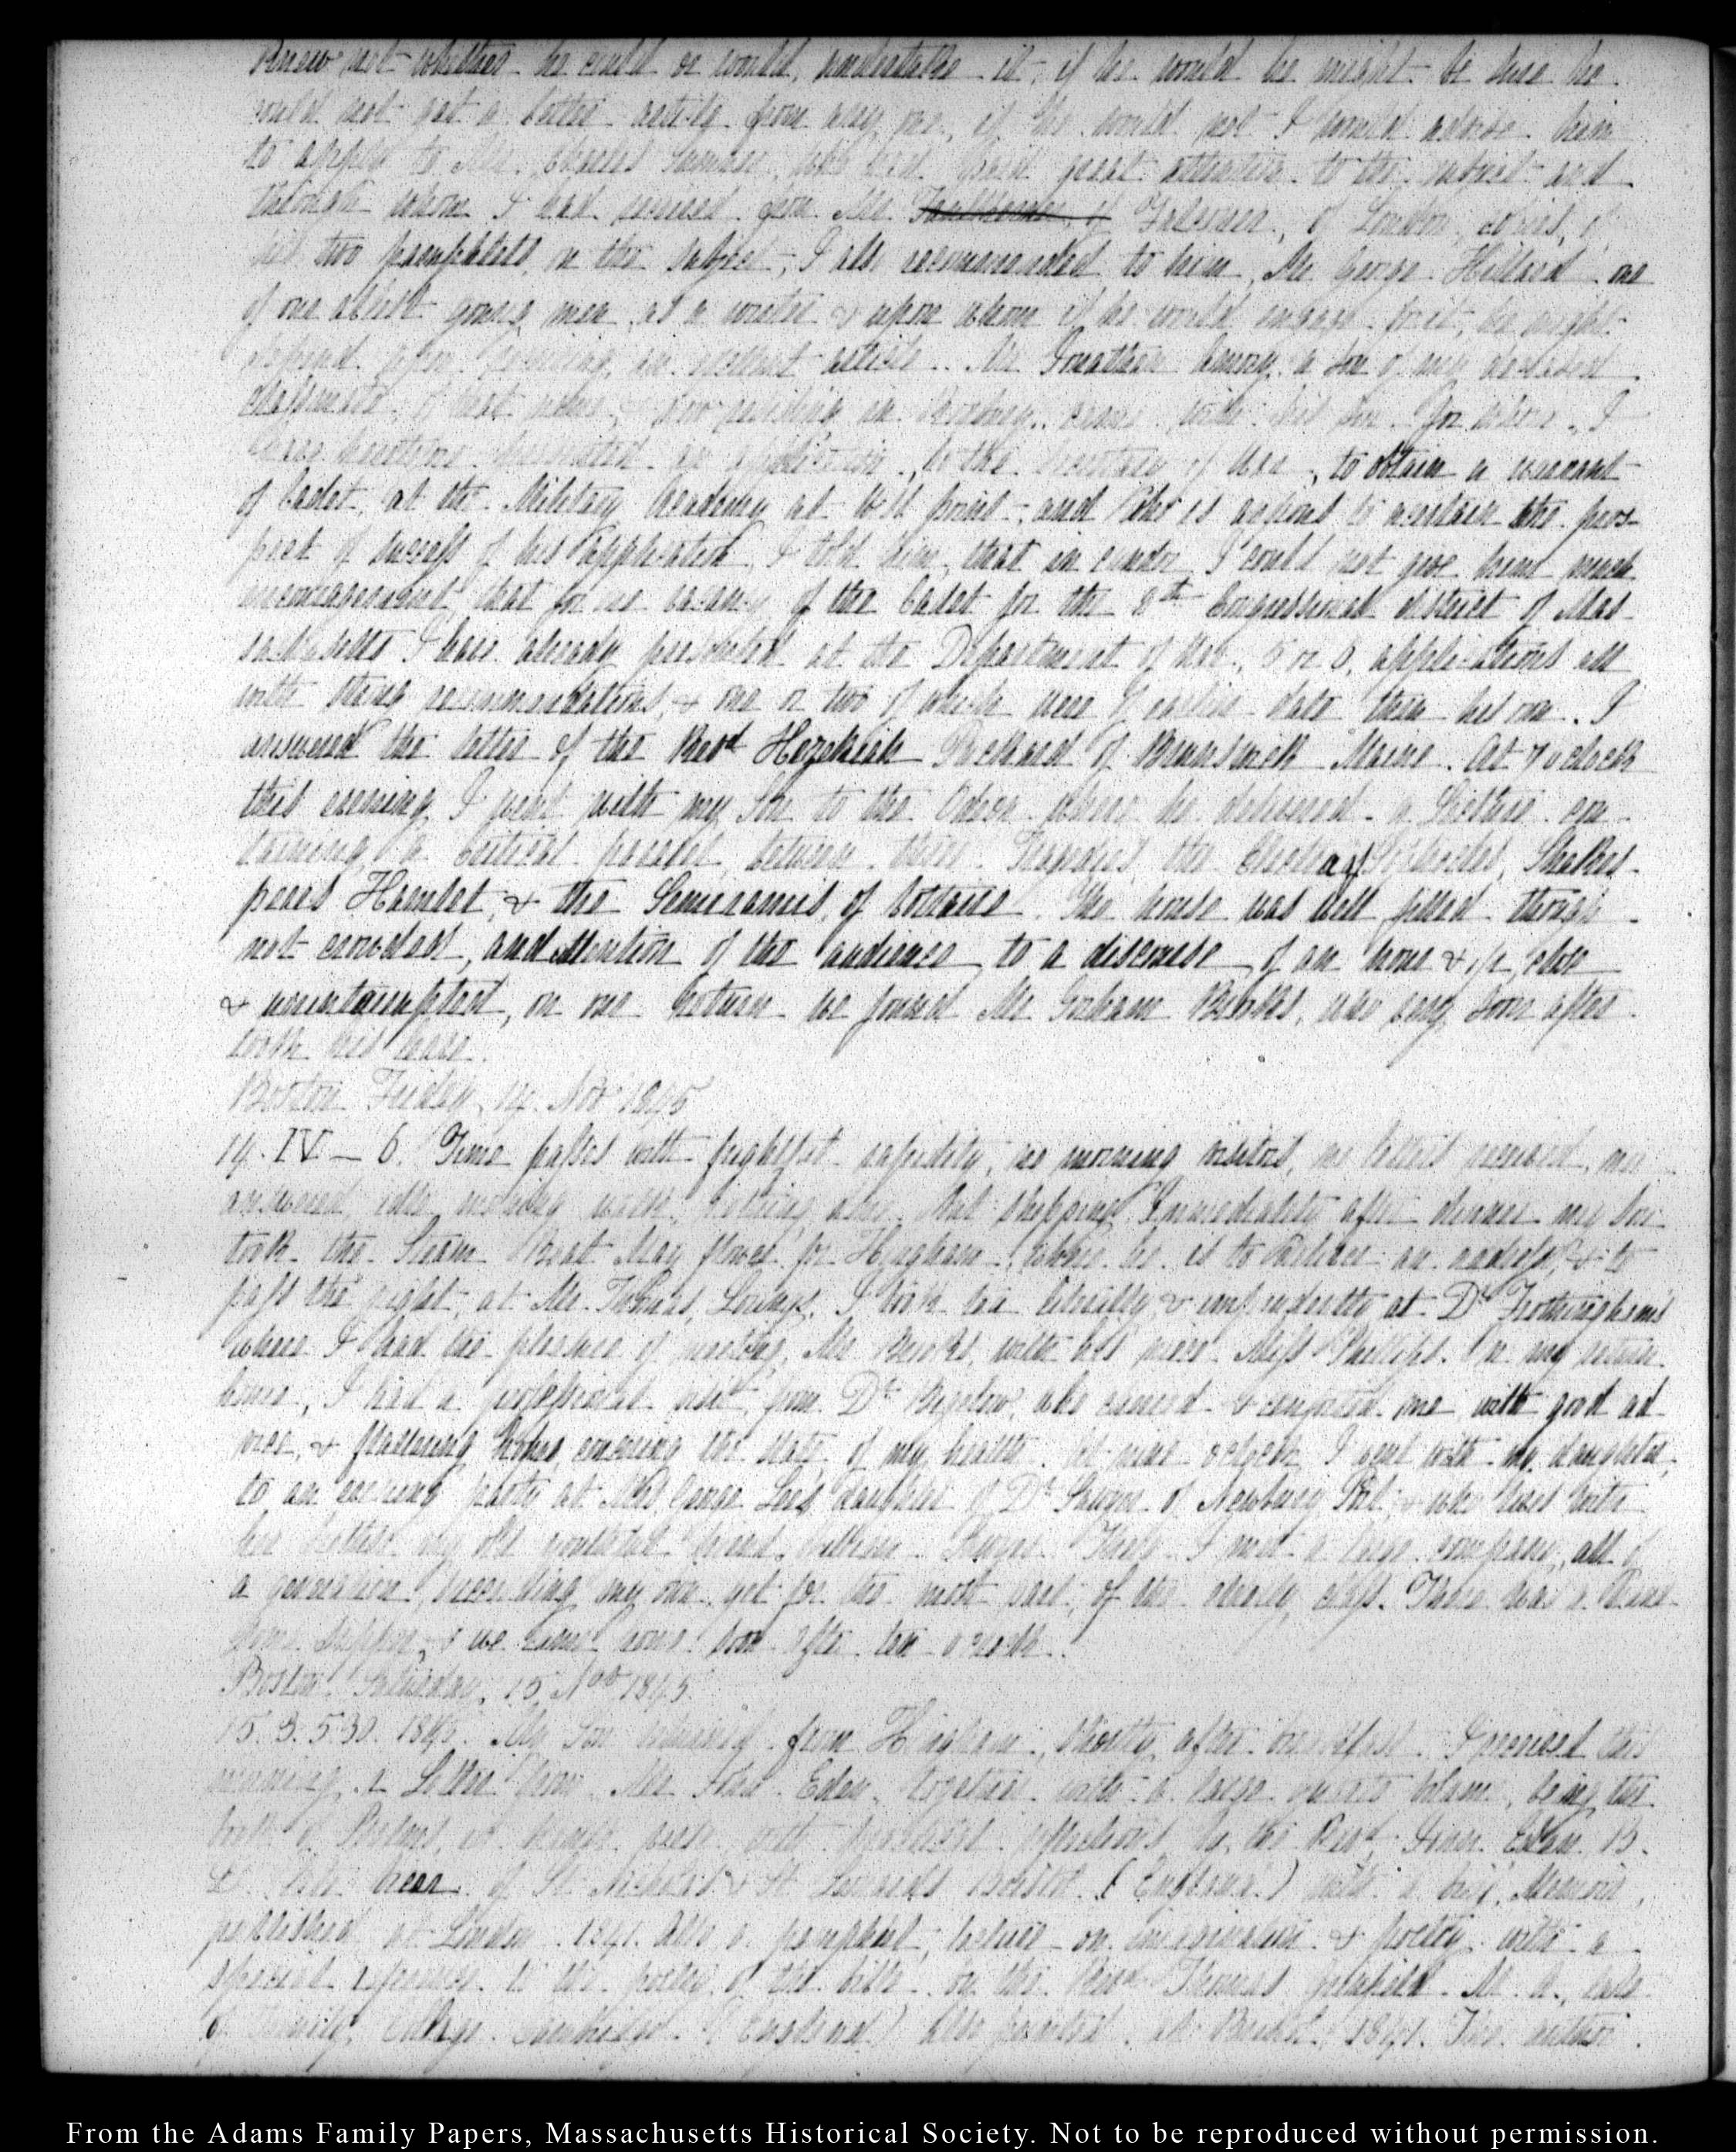 knew not whether he could or would, undertake it, if he would he might be sure he
could not get a better article from any one, if he would not I would advise him
to apply to Mr. Charles Sumner, who had paid great attention to the subject and
through whom I had received from Mr of London, copies, of
his two pamphlets, on the subject, I also recommended to him, Mr George Hillard one
of our ablest young men, as a writer & upon whom if he would engage for it, he might
depend upon receiving, an excellent article. Mr Jonathan Amory, a son of my deceased
classmate, of that name, & now residing in came with his son for whom, I
have heretofore presented an application, to the Secretary of War, to obtain a warrant
of Cadet, at the Military Academy at West point, and who is anxious to ascertain the pros-
pect of success of his application, I told him, that in candor I could not give him much
encouragement, that for one vacancy of the Cadet for the 8th Congressional district of Mas-
sachusetts I have already presented at the Department of War, 5 or 6, applications all
with strong recommendations, & one or two of which were of earlier date than his own. I
answered the letter of the Revd Hezekiah Packard of Brunswick Maine. At 7 o clock
this evening I went with my Son to the Odeon where he delivered a Lecture con-
taining, a critical parallel, between three Tragedies, the Electra of Sophocles, Shakes-
pears Hamlet, & the Semiramis, of Voltaire. The house was well filled though
not crowded, and attention of the audience, to a discourse, of an hour & close
& uninterrupted, on our return we found Mr Gorham Brooks, who very soon after
took his leave.
Boston Friday, 14. Nov 1845
14. IV — 6. Time passes with frightful rapidity, no morning visitors, no letters received, none
answered, idle nothing done. But shopping Immediately after dinner my Son
took the Steam Boat May flower for Hingham, where he is to deliver an address, & to
pass the night, at Mr. Thomas, Loring's. I took tea at Dr Frothingham's
where I had the pleasure of meeting, Mr Brooks, with his niece Miss Phillips. On my return
home, I had a professional visit, from Dr Bigelow, who cheered & comforted me with good ad
vice, & flattering hopes concerning the state of my health. At nine o clock, I went with my daughter,
to an evening party at Mrs. George Lee's, daughter of Dr Sawyer of Newbury Port, & who lives with
her Mother my old youthful friend, There I met a large company, all of
a generation succeeding my own yet for the most part, of the elderly class. There was a hand
some supper, & we came home soon after ten o clock.
Boston. Saturday, 15 Nov 1845.
15. 3. 5 30. 1845. My Son returned from Hingham, shortly after breakfast. I received this
morning, a Letter from Mr John Eden, together with a large quarto volume, being the
book of Psalms, in blank verse with practical reflections, by the Revd John Eden, B.
D. late Vicar of St Nicholas & St Leonards Bristol (England) with a brief Memoir,
published at London 1841. Also a pamphlet, lecture on imagination & poetry with a
special reference to the poetry of the bible by the Revd Thomas Grinfield M. A., late
of Trinity, College Cambridge (England) also printed at Bristol, 1841. The author
From the Adams Family Papers, Massachusetts Historical Society. Not to be reproduced without permission.